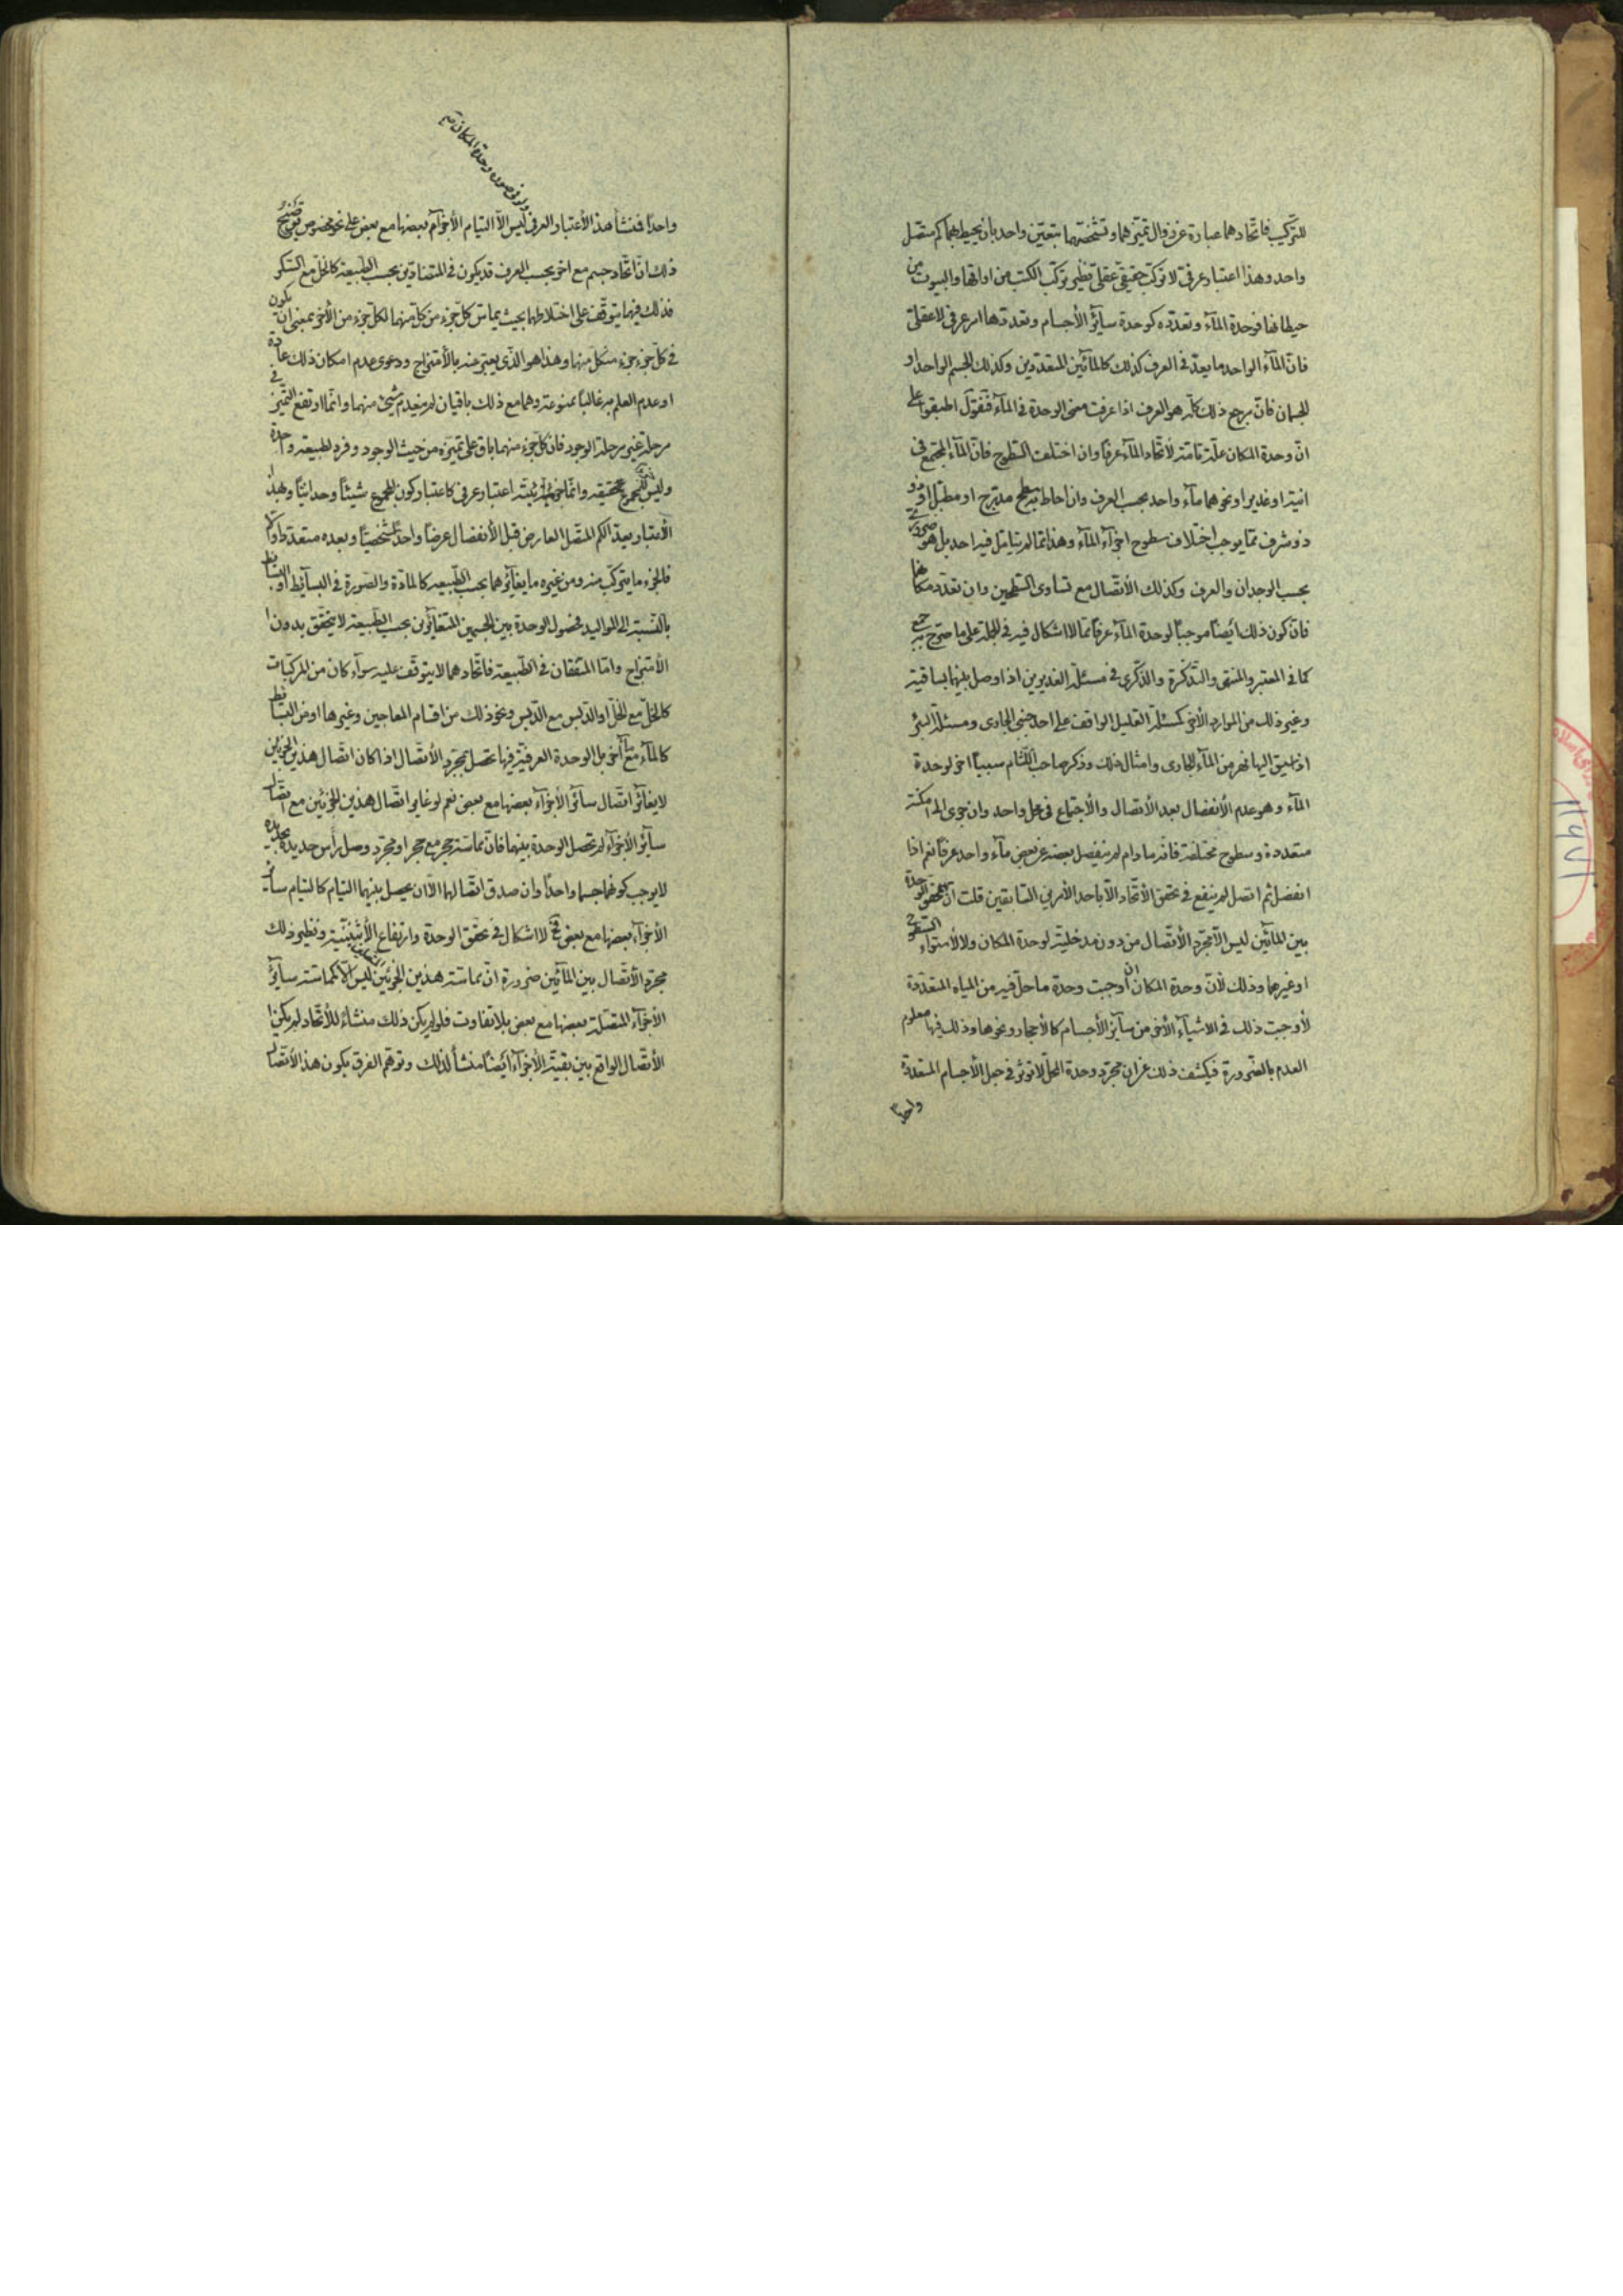 للتركيب فاتحادهما عبارة عن زوال تميزهما وتشخصهما بتعين واحد بان يحيط بهما كم متصل
واحد وهذا اعتبار عرفي لا تركب حقيقي عقلي نظير تركب الكتب من اوراقها والبيوت من
حيطانها فوحدة المآء وتعدده كوحدة سآئر الأجسام وتعددها امر عرفي لا عقلي
فان المآء الواحد ما يعد في العرف كذلك كالمآئين المتعددين وكذلك الجسم الواحد او
الجسمان فان مرجع ذلك كله هو العرف اذا عرفت معنى الوحدة في المآء فنقول اطبقوا على
ان وحدة المكان علة تامة لأتحاد المآء عرفا وان اختلفت السطوح فان المآء المجتمع في
انية او غدير او نحوهما مآء واحد بحسب العرف وان احاط به سطح مدرج او مطبل او ذو
ذو شرف مما يوجب اختلاف سطوح اجزآء المآء وهذا مما لم يتامل فيه احد بل هو ضروري
بحسب الوجدان والعرف وكذلك الأتصال مع تساوى السطحين وان تعدد مكانها
فان كون ذلك ايضا موجبا لوحدة المآء عرفا مما لا اشكال فيه في الجملة على ما صرح به جمع
كما في المعتبر والمنتهى والتذكرة والذكرى في مسئلة الغديرين اذا وصل بينهما بساقية
وغير ذلك من الموارد الأخر كمسئلة القليل الواقف على احد جنبي الجارى ومسئلة البئر
اذا سيق اليها نهر من المآء الجارى وامثال ذلك وذكر صاحب اللثام سببا اخر لوحدة
المآء وهو عدم الأنفصال بعد الأتصال والأجتماع في محل واحد وان جرى الى امكنة
متعددة وسطوح مختلفة فانه ما دام لم ينفصل بعضه عن بعض مآء واحد عرفا نعم اذا
انفصل ثم اتصل لم ينفع في تحقق الأتحاد الا باحد الأمرين السابقين قلت ان محقق الوحدة
بين المآئين ليس الا مجرد الأتصال من دون مدخلية لوحدة المكان ولا لأستواء السطوح
او غيرهما وذلك لأن وحدة المكان ان أوجبت وحدة ما حل فيه من المياه المتعددة
لأوجبت ذلك في الاشيآء الأخر من سآئر الأجسام كالأحجار ونحوها وذلك فيها معلوم
العدم بالضرورة فيكشف ذلك عن ان مجرد وحدة المحل لا تؤثر في جعل الأجسام المتعددة
واحدا
في صورة وحدة المكان
واحدا فمنشأ هذا الأعتبار العرفي ليس الا التيام الأجزآء بعضها مع بعض على نحو مخصوص توضيح
ذلك ان اتحاد جسم مع اخر بحسب العرف قد يكون في المتضادين بحسب الطبيعة كالخل مع السكر
فذلك فيهما يتوقف على اختلاطهما بحيث يماس كل جزء من كل منهما لكل جزء من الأخر بمعنى ان يكون
في كل جزء جزء من كل منهما وهذا هو الذي يعبر عنه بالأمتزاج ودعوى عدم امكان ذلك عادة
او عدم العلم به غالبا ممنوعة وهما مع ذلك باقيان لم ينعدم شئ منهما وانما ارتفع التميز في
مرحلة غير مرحلة الوجود فان كل جزء منهما باق على تميزه من حيث الوجود وفرد لطبيعة واحدة
وليس للمجموع حقيقة وانما اعتبار عرفي كاعتبار كون المجموع شيئا وحدانيا وبهذا
الأعتبار يعد الكم المتصل العارض قبل الأنفصال عرضا واحدا شخصيا وبعده متعددا واما
فالجزء ما يتركب منه ومن غيره ما يغآئرهما بحسب الطبيعة كالمادة والصورة في البسآئط او البسائط
بالنسبة الى المواليد فحصول الوحدة بين الجسمين المتغآئرين بحسب الطبيعة لا يتحقق بدون
الأمتزاج واما المتفقان في الطبيعة فاتحادهما لا يتوقف عليه سوآء كان من المركبات
كالخل مع الخل او الدبس مع الدبس ونحو ذلك من اقسام المعاجين وغيرها او من البسائط
كالمآء مع مآء آخر بل الوحدة العرفية فيها تحصل بمجرد الأتصال اذا كان اتصال هذين الجزئين
لا يغآئر اتصال سآئر الأجزآء بعضها مع بعض نعم لو غاير اتصال هذين الجزئين مع اتصال
سآئر الأجزآء لم تحصل الوحدة بينهما فان مماسة حجر مع حجر او مجرد وصل رأس حديدة بحديدة
لا يوجب كونهما جسما واحدا وان صدق اتصالهما الا ان يحصل بينهما التيام كالتيام سائر
الأجزآء بعضها مع بعض فح لا اشكال في تحقق الوحدة وارتفاع الأثنينية ونظير ذلك
مجرد الأتصال بين المآئين ضرورة ان مماسة هذين الجزئين ليس الا كمماسة سآئر
الأجزآء المتصلة بعضها مع بعض بلا تفاوت فلو لم يكن ذلك منشاء للأتحاد لم يكن
الأتصال الواقع بين بقية الأجزآء ايضا منشأ لذلك وتوهم الفرق بكون هذا الأتصال